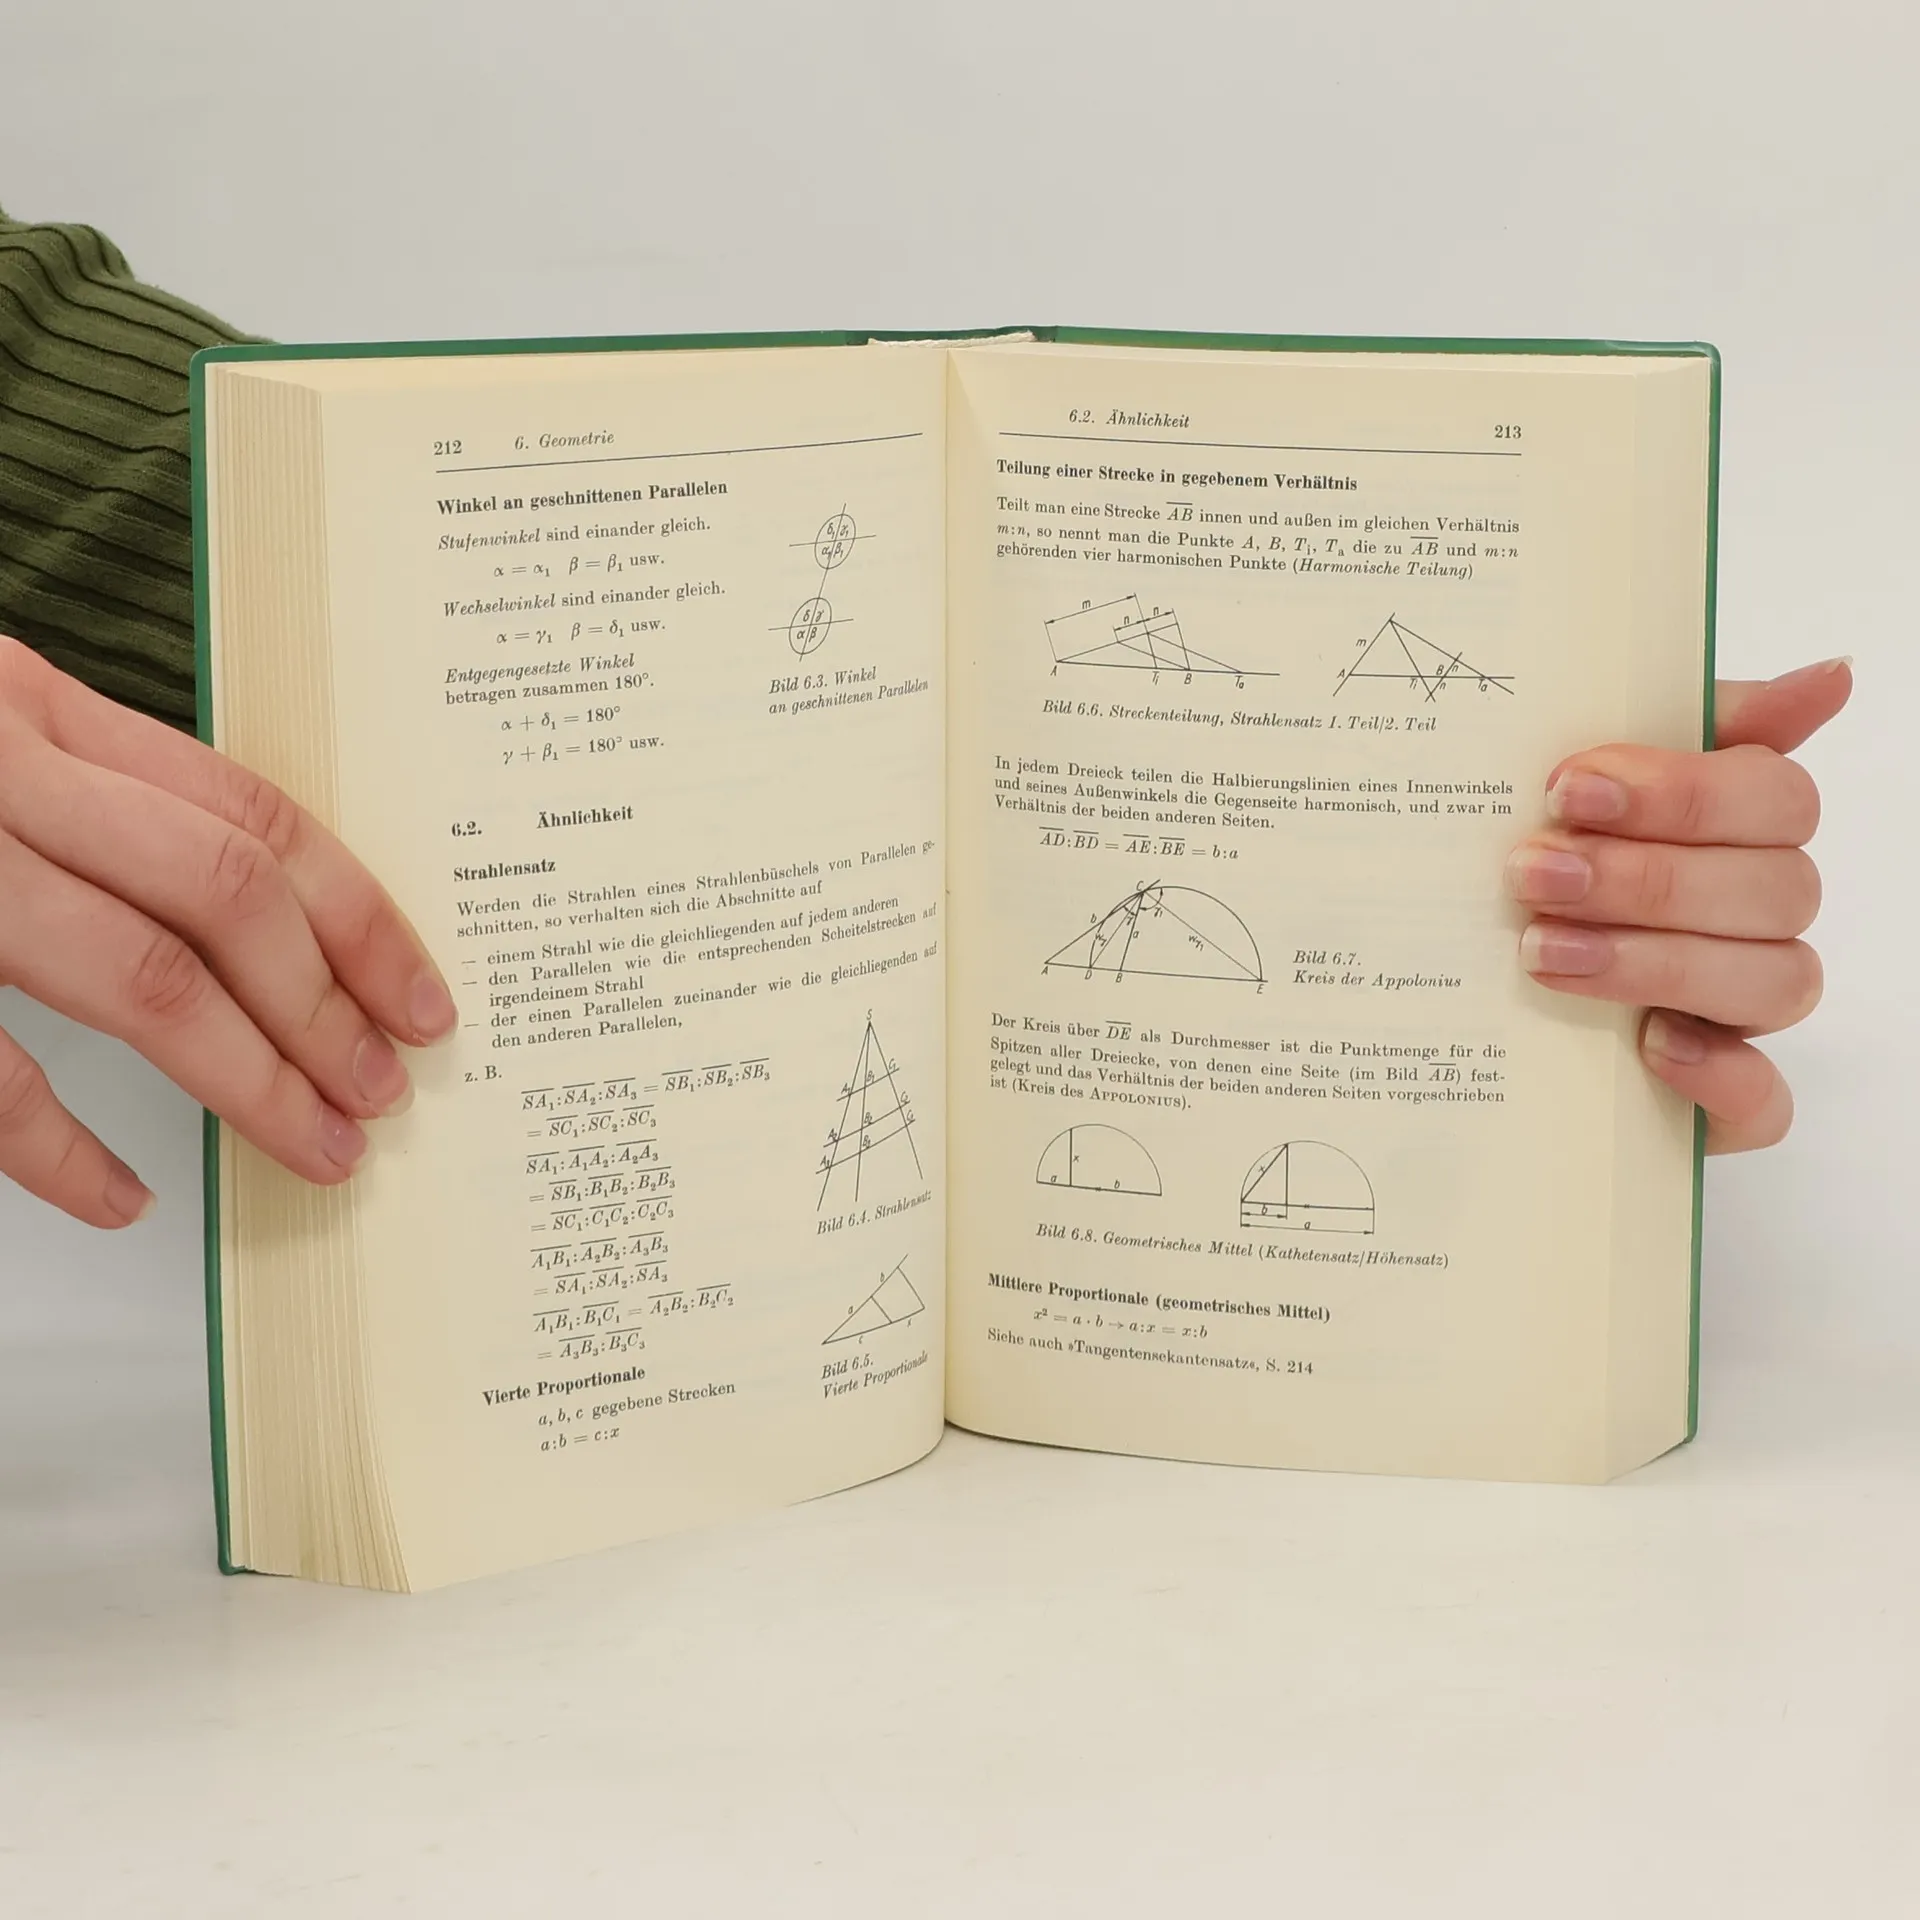 212 6. Geometrie
Winkel an geschnittenen Parallelen
Stufenwinkel sind einander gleich.
α = α₁ β = β₁ usw.
Wechselwinkel sind einander gleich.
α = γ₁ β = δ₁ usw.
Entgegengesetzte Winkel
betragen zusammen 180°.
α + δ₁ = 180°
γ + β₁ = 180° usw.
δ₁ γ₁
α₁ β₁
δ γ
α β
Bild 6.3. Winkel
an geschnittenen Parallelen
6.2. Ähnlichkeit
Strahlensatz
Werden die Strahlen eines Strahlenbüschels von Parallelen ge-
schnitten, so verhalten sich die Abschnitte auf
— einem Strahl wie die gleichliegenden auf jedem anderen
— den Parallelen wie die entsprechenden Scheitelstrecken auf
irgendeinem Strahl
— der einen Parallelen zueinander wie die gleichliegenden auf
den anderen Parallelen,
z. B.
S̅A̅₁:S̅A̅₂:S̅A̅₃ = S̅B̅₁:S̅B̅₂:S̅B̅₃
= S̅C̅₁:S̅C̅₂:S̅C̅₃
S̅A̅₁:A̅₁A̅₂:A̅₂A̅₃
= S̅B̅₁:B̅₁B̅₂:B̅₂B̅₃
= S̅C̅₁:C̅₁C̅₂:C̅₂C̅₃
A̅₁B̅₁:A̅₂B̅₂:A̅₃B̅₃
= S̅A̅₁:S̅A̅₂:S̅A̅₃
A̅₁B̅₁:B̅₁C̅₁ = A̅₂B̅₂:B̅₂C̅₂
= A̅₃B̅₃:B̅₃C̅₃
S
A₁ B₁ C₁
A₂ B₂ C₂
A₃ B₃
Bild 6.4. Strahlensatz
a b
c x
Bild 6.5.
Vierte Proportionale
Vierte Proportionale
a, b, c gegebene Strecken
a:b = c:x
6.2. Ähnlichkeit 213
Teilung einer Strecke in gegebenem Verhältnis
Teilt man eine Strecke A̅B̅ innen und außen im gleichen Verhältnis
m:n, so nennt man die Punkte A, B, Tᵢ, Tₐ die zu A̅B̅ und m:n
gehörenden vier harmonischen Punkte (Harmonische Teilung)
m n n
A Tᵢ B Tₐ
m
A Tᵢ B n n Tₐ
Bild 6.6. Streckenteilung, Strahlensatz 1. Teil/2. Teil
In jedem Dreieck teilen die Halbierungslinien eines Innenwinkels
und seines Außenwinkels die Gegenseite harmonisch, und zwar im
Verhältnis der beiden anderen Seiten.
A̅D̅:B̅D̅ = A̅E̅:B̅E̅ = b:a
C
b γ γ₁
a
A D B E
Bild 6.7.
Kreis der Appolonius
Der Kreis über D̅E̅ als Durchmesser ist die Punktmenge für die
Spitzen aller Dreiecke, von denen eine Seite (im Bild A̅B̅) fest-
gelegt und das Verhältnis der beiden anderen Seiten vorgeschrieben
ist (Kreis des APPOLONIUS).
x
a b
x
b
a
Bild 6.8. Geometrisches Mittel (Kathetensatz/Höhensatz)
Mittlere Proportionale (geometrisches Mittel)
x² = a · b → a:x = x:b
Siehe auch »Tangentensekantensatz«, S. 214